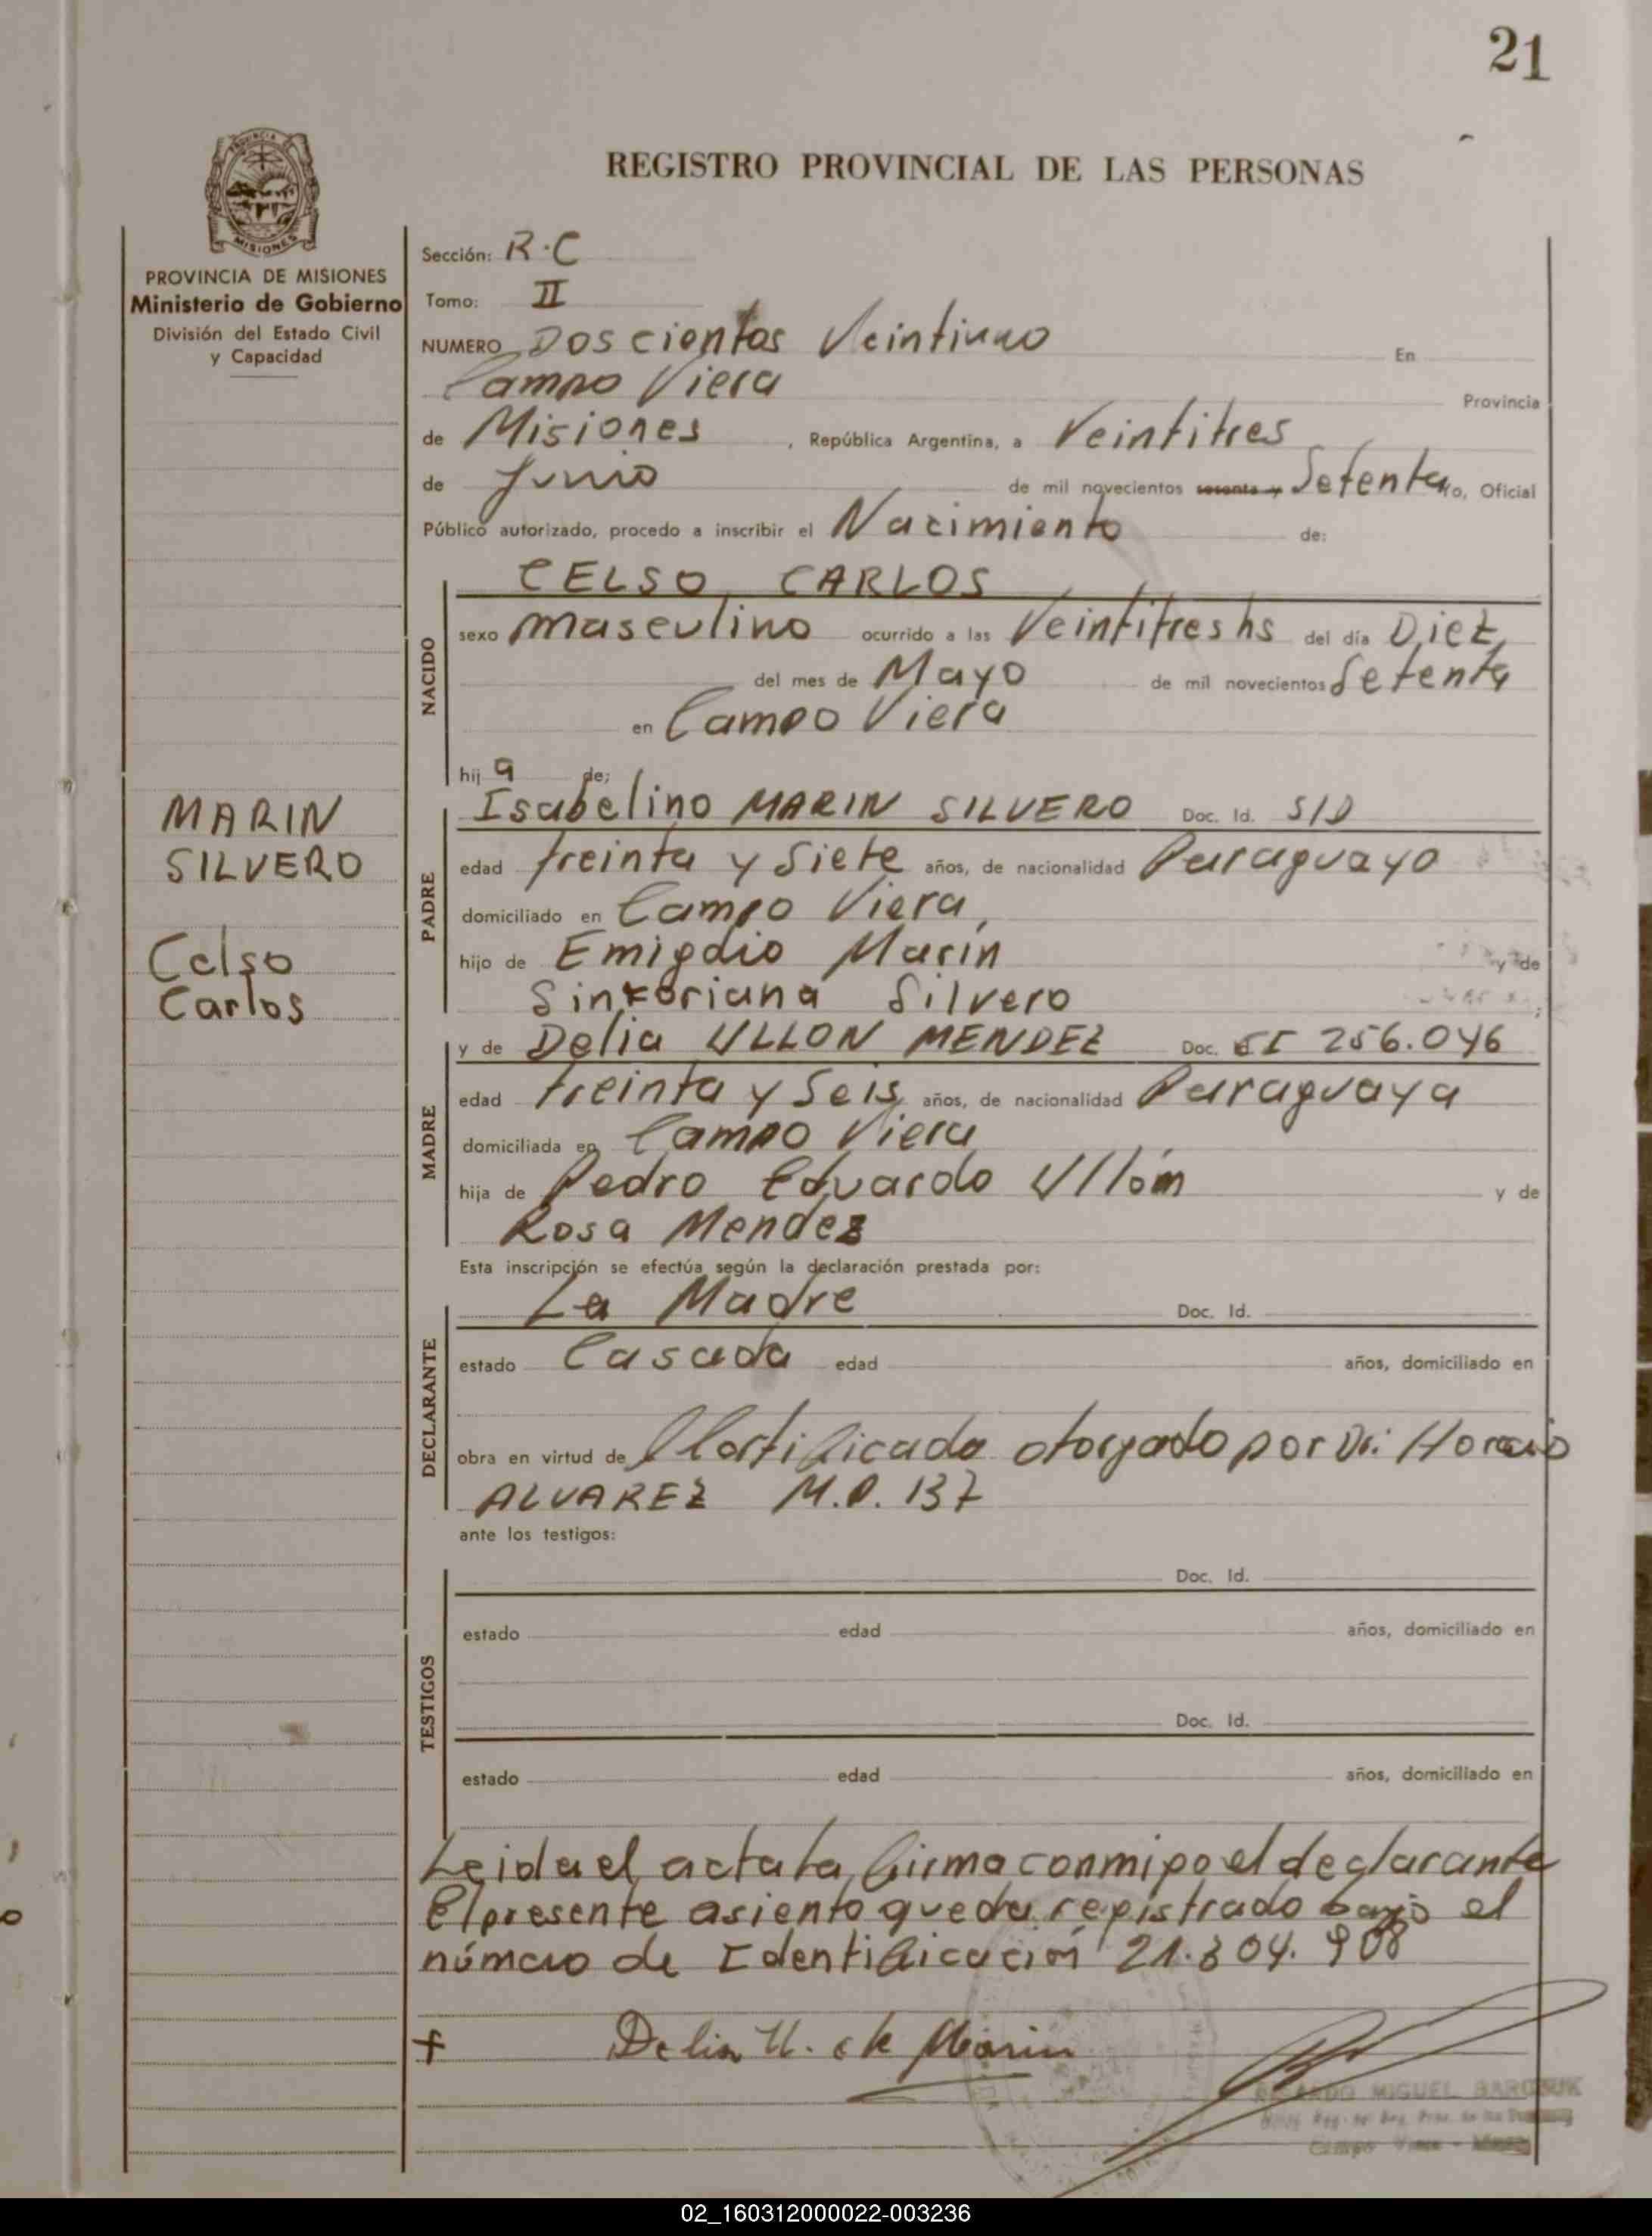 21
REGISTRO PROVINCIAL DE LAS PERSONAS
PROVINCIA DE MISIONES
Ministerio de Gobierno
División del Estado Civil
y Capacidad
Sección: R.C
Tomo: II
NUMERO Doscientos Veintiuno En
Campo Viera Provincia
de Misiones , República Argentina, a Veintitres
de Junio de mil novecientos sesenta y Setenta yo, Oficial
Público autorizado, procedo a inscribir el Nacimiento de:
NACIDO
CELSO CARLOS
sexo masculino ocurrido a las Veintitres hs del día Diez
del mes de Mayo de mil novecientos Setenta
en Campo Viera
hij a de;
MARIN
SILVERO
Celso
Carlos
PADRE
Isabelino MARIN SILVERO Doc. Id. S/D
edad treinta y Siete años, de nacionalidad Paraguayo
domiciliado en Campo Viera,
hijo de Emigdio Marin y de
Sinforiana Silvero
MADRE
y de Delia ULLON MENDEZ Doc. CI 256.046
edad treinta y Seis años, de nacionalidad Paraguaya
domiciliada en Campo Viera
hija de Pedro Eduardo Ullóm y de
Rosa Mendez
Esta inscripción se efectúa según la declaración prestada por:
DECLARANTE
La Madre Doc. Id.
estado Casada edad años, domiciliado en
obra en virtud de Certificado otorgado por Dr: Horacio
ALVAREZ M.P. 137
ante los testigos:
TESTIGOS
Doc. Id.
estado edad años, domiciliado en
Doc. Id.
estado edad años, domiciliado en
Leida el acta la firma conmigo el declarante
El presente asiento queda registrado bajo el
número de Identificación 21.304.908
Delia U. de Marin
MIGUEL
Campo Viera
02_160312000022-003236